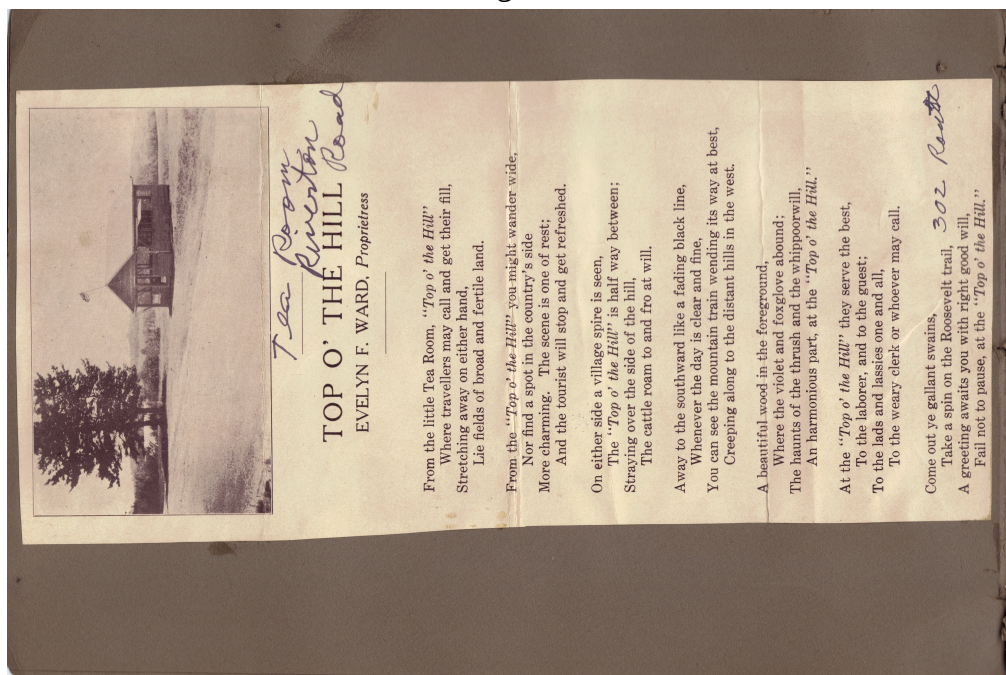 Tea Room
Riverton
Road
TOP O' THE HILL
EVELYN F. WARD, Proprietress
From the little Tea Room, "Top o' the Hill"
Where travellers may call and get their fill,
Stretching away on either hand,
Lie fields of broad and fertile land.
From the "Top o' the Hill" you might wander wide,
Nor find a spot in the country's side
More charming. The scene is one of rest;
And the tourist will stop and get refreshed.
On either side a village spire is seen,
The "Top o' the Hill" is half way between;
Straying over the side of the hill,
The cattle roam to and fro at will.
Away to the southward like a fading black line,
Whenever the day is clear and fine,
You can see the mountain train wending its way at best,
Creeping along to the distant hills in the west.
A beautiful wood in the foreground,
Where the violet and foxglove abound;
The haunts of the thrush and the whippoorwill,
An harmonious part, at the "Top o' the Hill."
At the "Top o' the Hill" they serve the best,
To the laborer, and to the guest;
To the lads and lassies one and all,
To the weary clerk or whoever may call.
Come out ye gallant swains,
Take a spin on the Roosevelt trail, 302 Route
A greeting awaits you with right good will,
Fail not to pause, at the "Top o' the Hill."